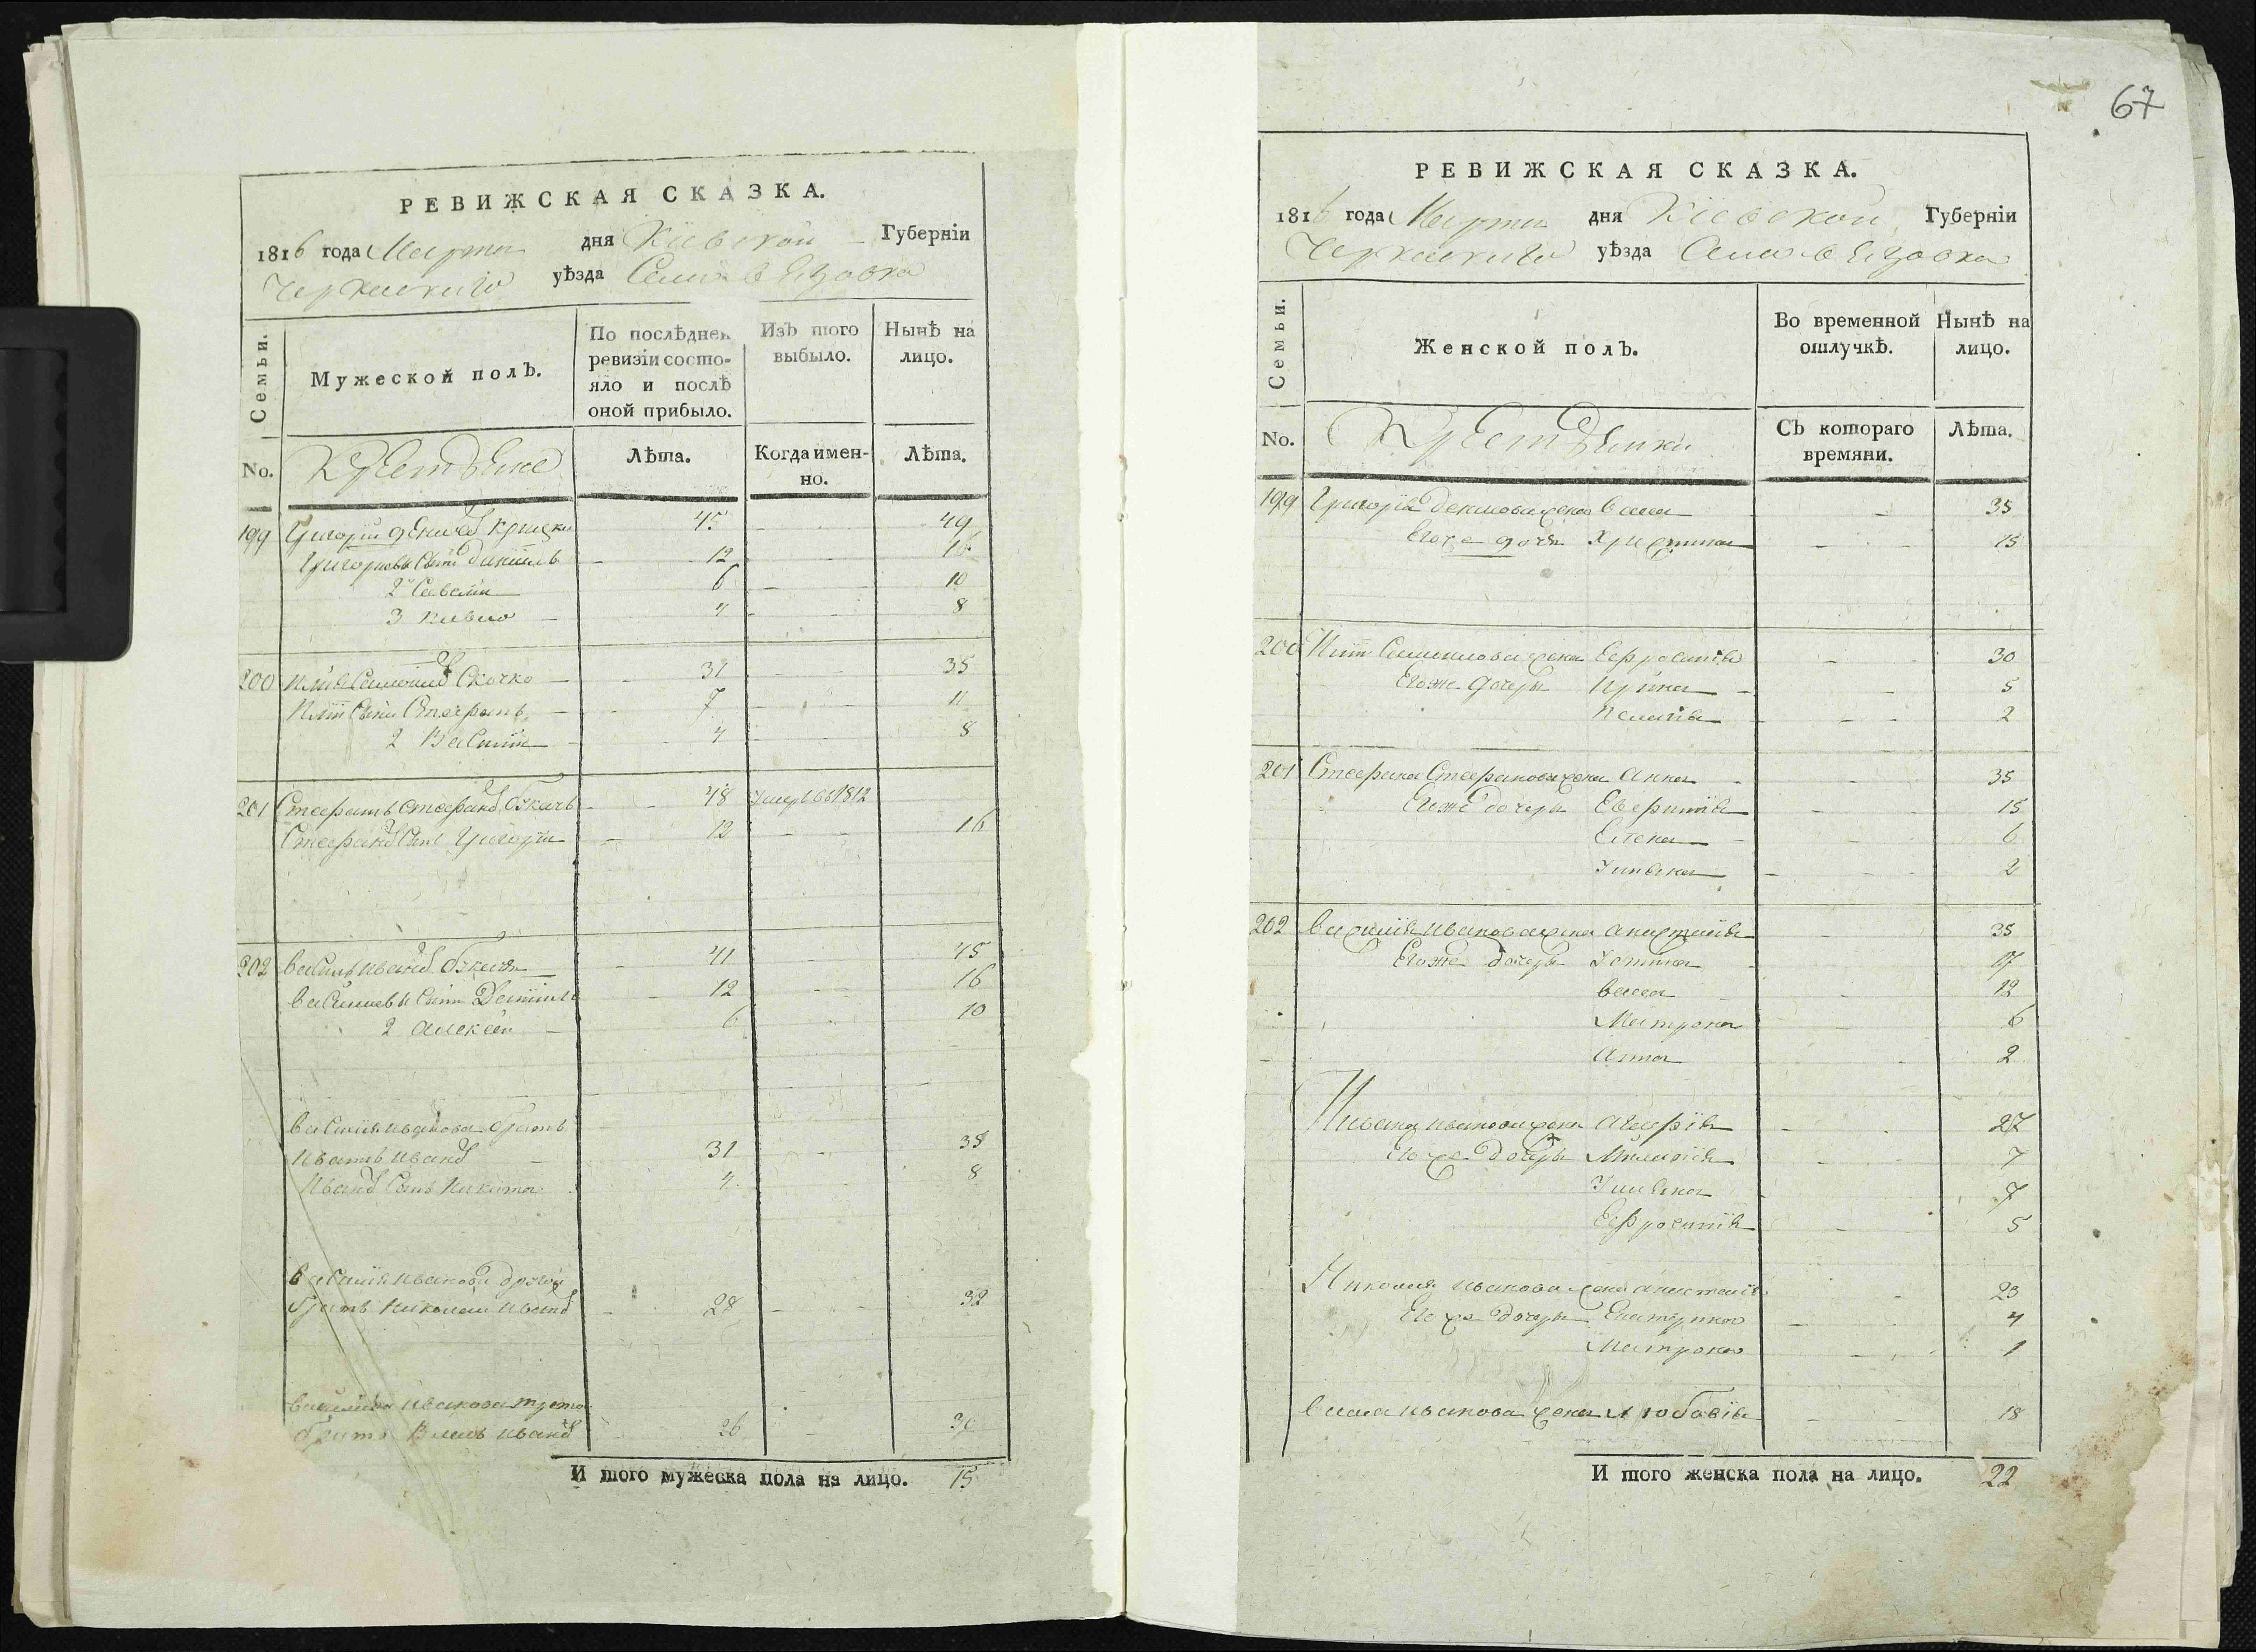 67
РЕВИЖСКАЯ СКАЗКА.
1816 года Марта дня Кіевской Губерніи
Черкаскаго уѣзда Села
Семьи.
Мужеской полъ.
По послѣдней ревизіи состо-
яло и послѣ
оной прибыло.
Изъ того
выбыло.
Нынѣ на
лицо.
No.
Крестьяне
Лѣта.
Когда имен-
но.
Лѣта.
199 Григорій 45 49
Григорьевы Сыны Даніилъ 12 16
2й Савелій 6 10
3 Павло 4 8
200 Илія Скочко 31 35
Иліи Сыны Стефанъ 7 11
2 Василій 4 8
201 Стефанъ Стефановъ Ткачъ 48 Умеръ въ 1812
Стефановъ Сынъ Григорій 12 16
202 Василь Ивановъ Ткачъ 41 45
Василіевы Сыны Даніилъ 12 16
2 Алексѣй 6 10
Василія Иванова братъ
Иванъ Ивановъ 31 35
Ивановъ Сынъ Никита 4 8
Василія Иванова другой
братъ Николай Ивановъ 28 32
Василія Иванова трето
братъ Власъ Ивановъ 26 30
И того мужеска пола на лицо. 15
РЕВИЖСКАЯ СКАЗКА.
1816 года Марта дня Кіевской Губерніи
Черкаскаго уѣзда Села
Семьи.
Женской полъ.
Во временной
отлучкѣ.
Нынѣ на
лицо.
No.
Крестьянки
Съ котораго
времяни.
Лѣта.
199 Григорія жена Васса 35
Егоже дочь Христина 15
200 Иліи жена Ефросинія 30
Егоже дочеры Ирина 5
Пелагія 2
201 Стефана Стефанова жена Анна 35
Егоже дочеры 15
Елена 6
Ульяна 2
202 Василія Иванова жена Анастасія 35
Егоже дочеры Устина 17
Васса 12
Матрона 6
Анна 2
Ивана Иванова жена Агафія 27
Егоже дочеры Меланія 7
Ульяна 7
Ефросинія 5
Николая Иванова жена Анастасія 23
Егоже дочеры Екатерина 4
Матрона 1
Власа Иванова жена Любовія 18
И того женска пола на лицо. 22